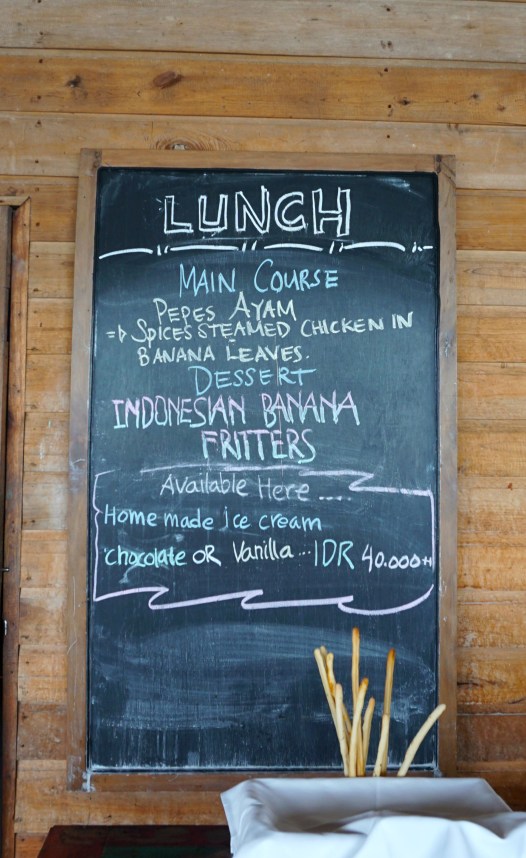 LUNCH
MAIN COURSE
PEPES AYAM
=> SPICES STEAMED CHICKEN IN
BANANA LEAVES.
DESSERT
INDONESIAN BANANA
FRITTERS
Available Here ....
Home made ice cream
chocolate OR Vanilla ... IDR 40.000++